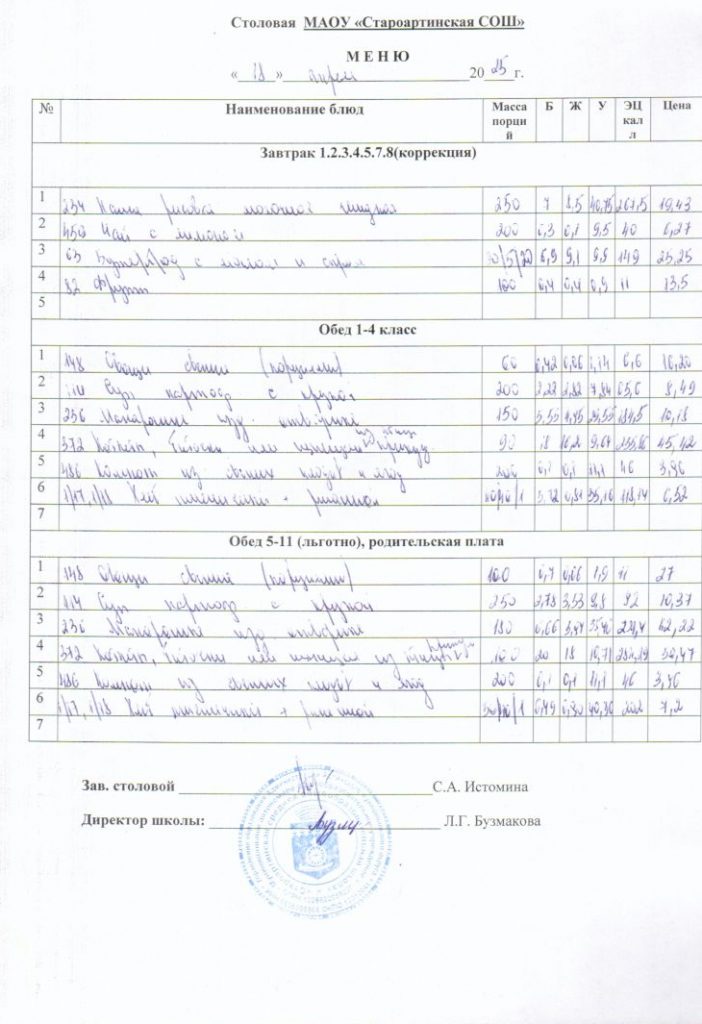 Столовая МАОУ «Староартинская СОШ»
М Е Н Ю
« 18 » апреля 2025 г.
№ Наименование блюд Масса порций Б Ж У ЭЦ калл Цена
Завтрак 1.2.3.4.5.7.8(коррекция)
1 234 Каша рисовая молочная жидкая 250 7 8,5 40,75 267,5 19,43
2 459 Чай с лимоном 200 0,3 0,1 9,5 40 6,27
3 63 Бутерброд с маслом и сыром 6,9 9,1 9,9 149 25,25
4 82 Фрукт 100 0,4 0,4 0,9 11 13,5
5
Обед 1-4 класс
1 148 Овощи свежие (порциями) 60 0,42 0,06 1,14 6,6 16,20
2 Суп картоф с крупой 200 2,22 2,82 7,84 65,6 8,49
3 256 Макаронные изд. отварные 150 184,5 10,18
4 372 Котлеты, биточки или из птицы 90 18 45,42
5 486 Компот из свежих плодов и ягод 200 0,1 0,1 11,1 46 3,96
6 1/17, 1/18 Хлеб пшеничный + ржаной 118,14 6,52
7
Обед 5-11 (льготно), родительская плата
1 148 Овощи свежие (порциями) 100 0,7 1,9 11 27
2 114 Суп картоф. с крупой 250 2,78 3,53 9,8 92 10,37
3 256 Макаронные изд отварные 180 12,22
4 372 Котлеты, биточки или из птицы 100 20 18 10,71 50,47
5 486 Компот из свежих плодов и ягод 200 0,1 0,1 11,1 46 3,96
6 1/17, 1/18 Хлеб пшеничный + ржаной 202 7,2
7
Зав. столовой С.А. Истомина
Директор школы: Л.Г. Бузмакова